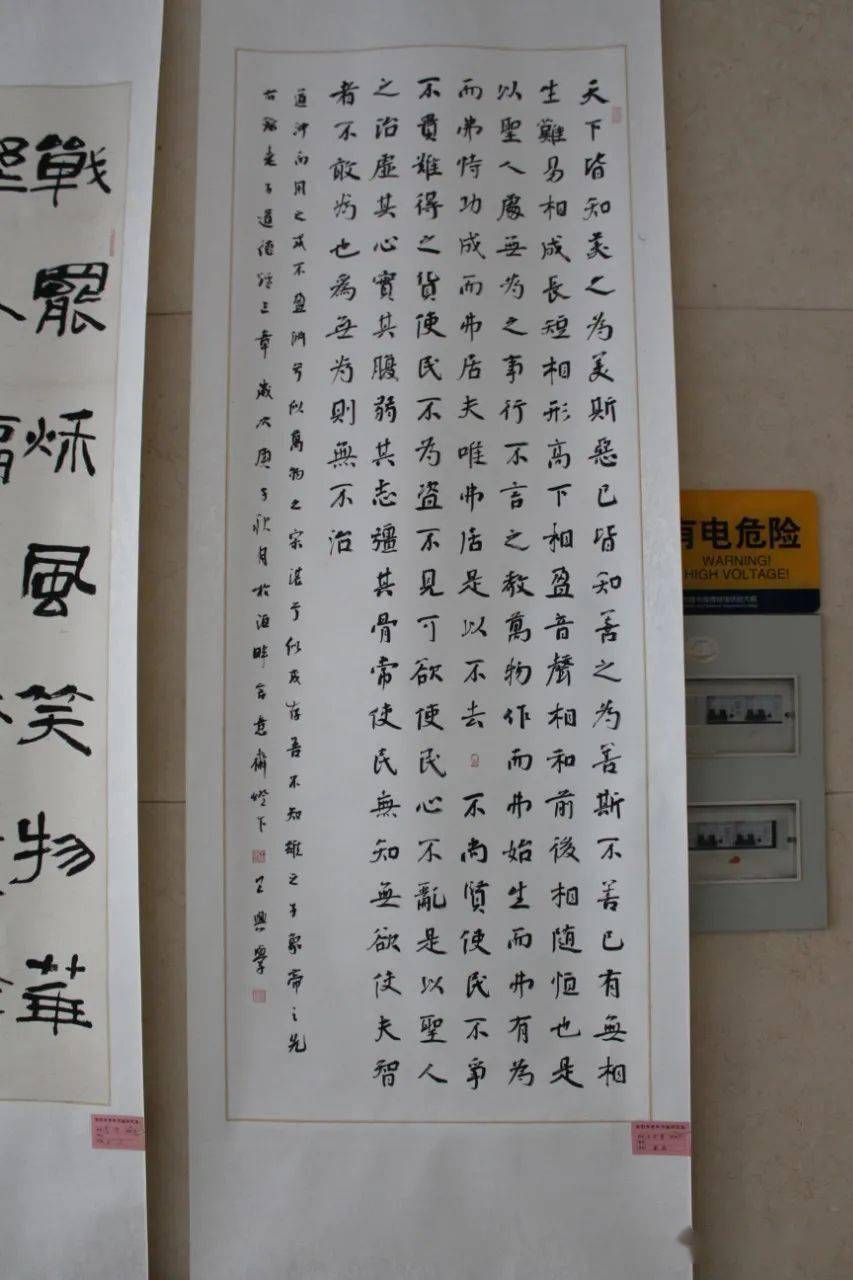 天下皆知美之為美斯惡已皆知善之為善斯不善已有無相
生難易相成長短相形高下相盈音聲相和前後相随恒也是
以聖人處無為之事行不言之教萬物作而弗始生而弗有為
而弗恃功成而弗居夫唯弗居是以不去 不尚賢使民不爭
不貴難得之貨使民不為盗不見可欲使民心不亂是以聖人
之治虛其心實其腹弱其志彊其骨常使民無知無欲使夫智
者不敢為也為無為則無不治
道沖而用之或不盈渊兮似萬物之宗湛兮似或存吾不知誰之子象帝之先
右録老子道德經三章歲次庚子秋月於洹畔古意齋燈下 王興學
戰罷秌風笑物華
有电危险
WARNING!
HIGH VOLTAGE!